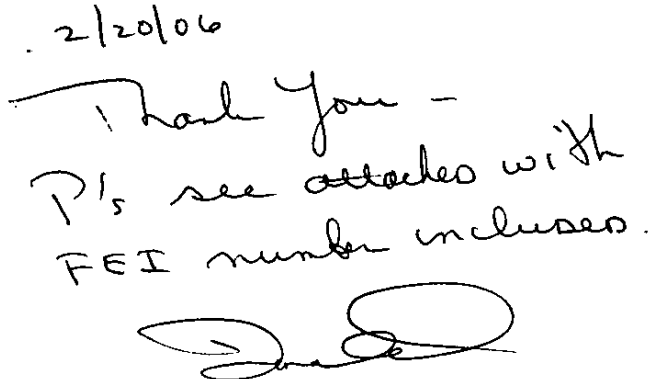 2/20/06
Thank You -
P's see attached with
FEI number included.